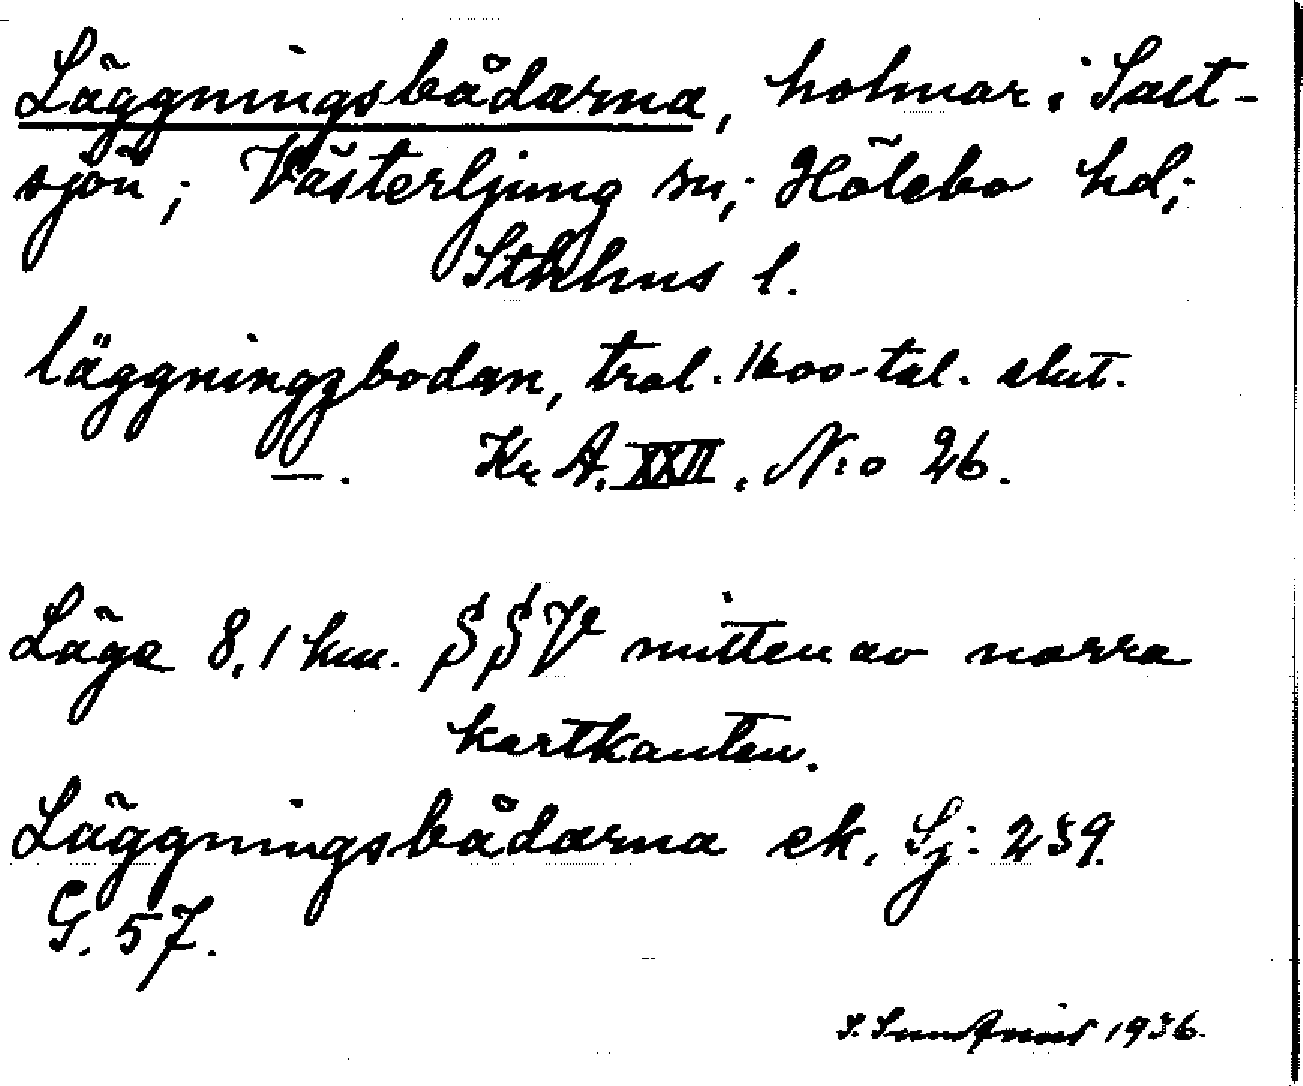 Läggningsbådarna, holmar i Salt-
sjön; Västerljung sn; Hölebo hd;
Sthlms l.
läggningzbodan, trol. 1600-tal. slut.
—. Kr. A. XXII. N:o 26.
Läge 8,1 km. SSV mitten av norra
kartkanten.
Läggningsbådarna ek. Sj: 239.
G. 57.
1936.